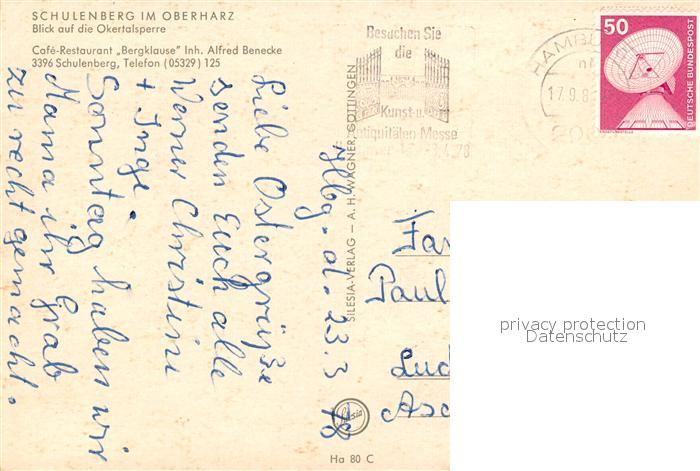 SCHULENBERG IM OBERHARZ
Blick auf die Okertalsperre
Café-Restaurant „Bergklause" Inh. Alfred Benecke
3396 Schulenberg, Telefon (05329) 125
Besuchen Sie
die
Kunst- u.
Antiquitäten-Messe
4.78
HAMBURG
17.9.8
50
DEUTSCHE BUNDESPOST
SILESIA-VERLAG – A. H. WAGNER, GÖTTINGEN
Hbg. d. 23.3 78
Liebe Ostergrüße
senden Euch alle
Werner Christini
+ Inge.
Sonntag haben wir
Mama ihr Grab
zurecht gemacht.
Fa
Paul
Lud
Asc
Silesia
Ha 80 C
privacy protection
Datenschutz